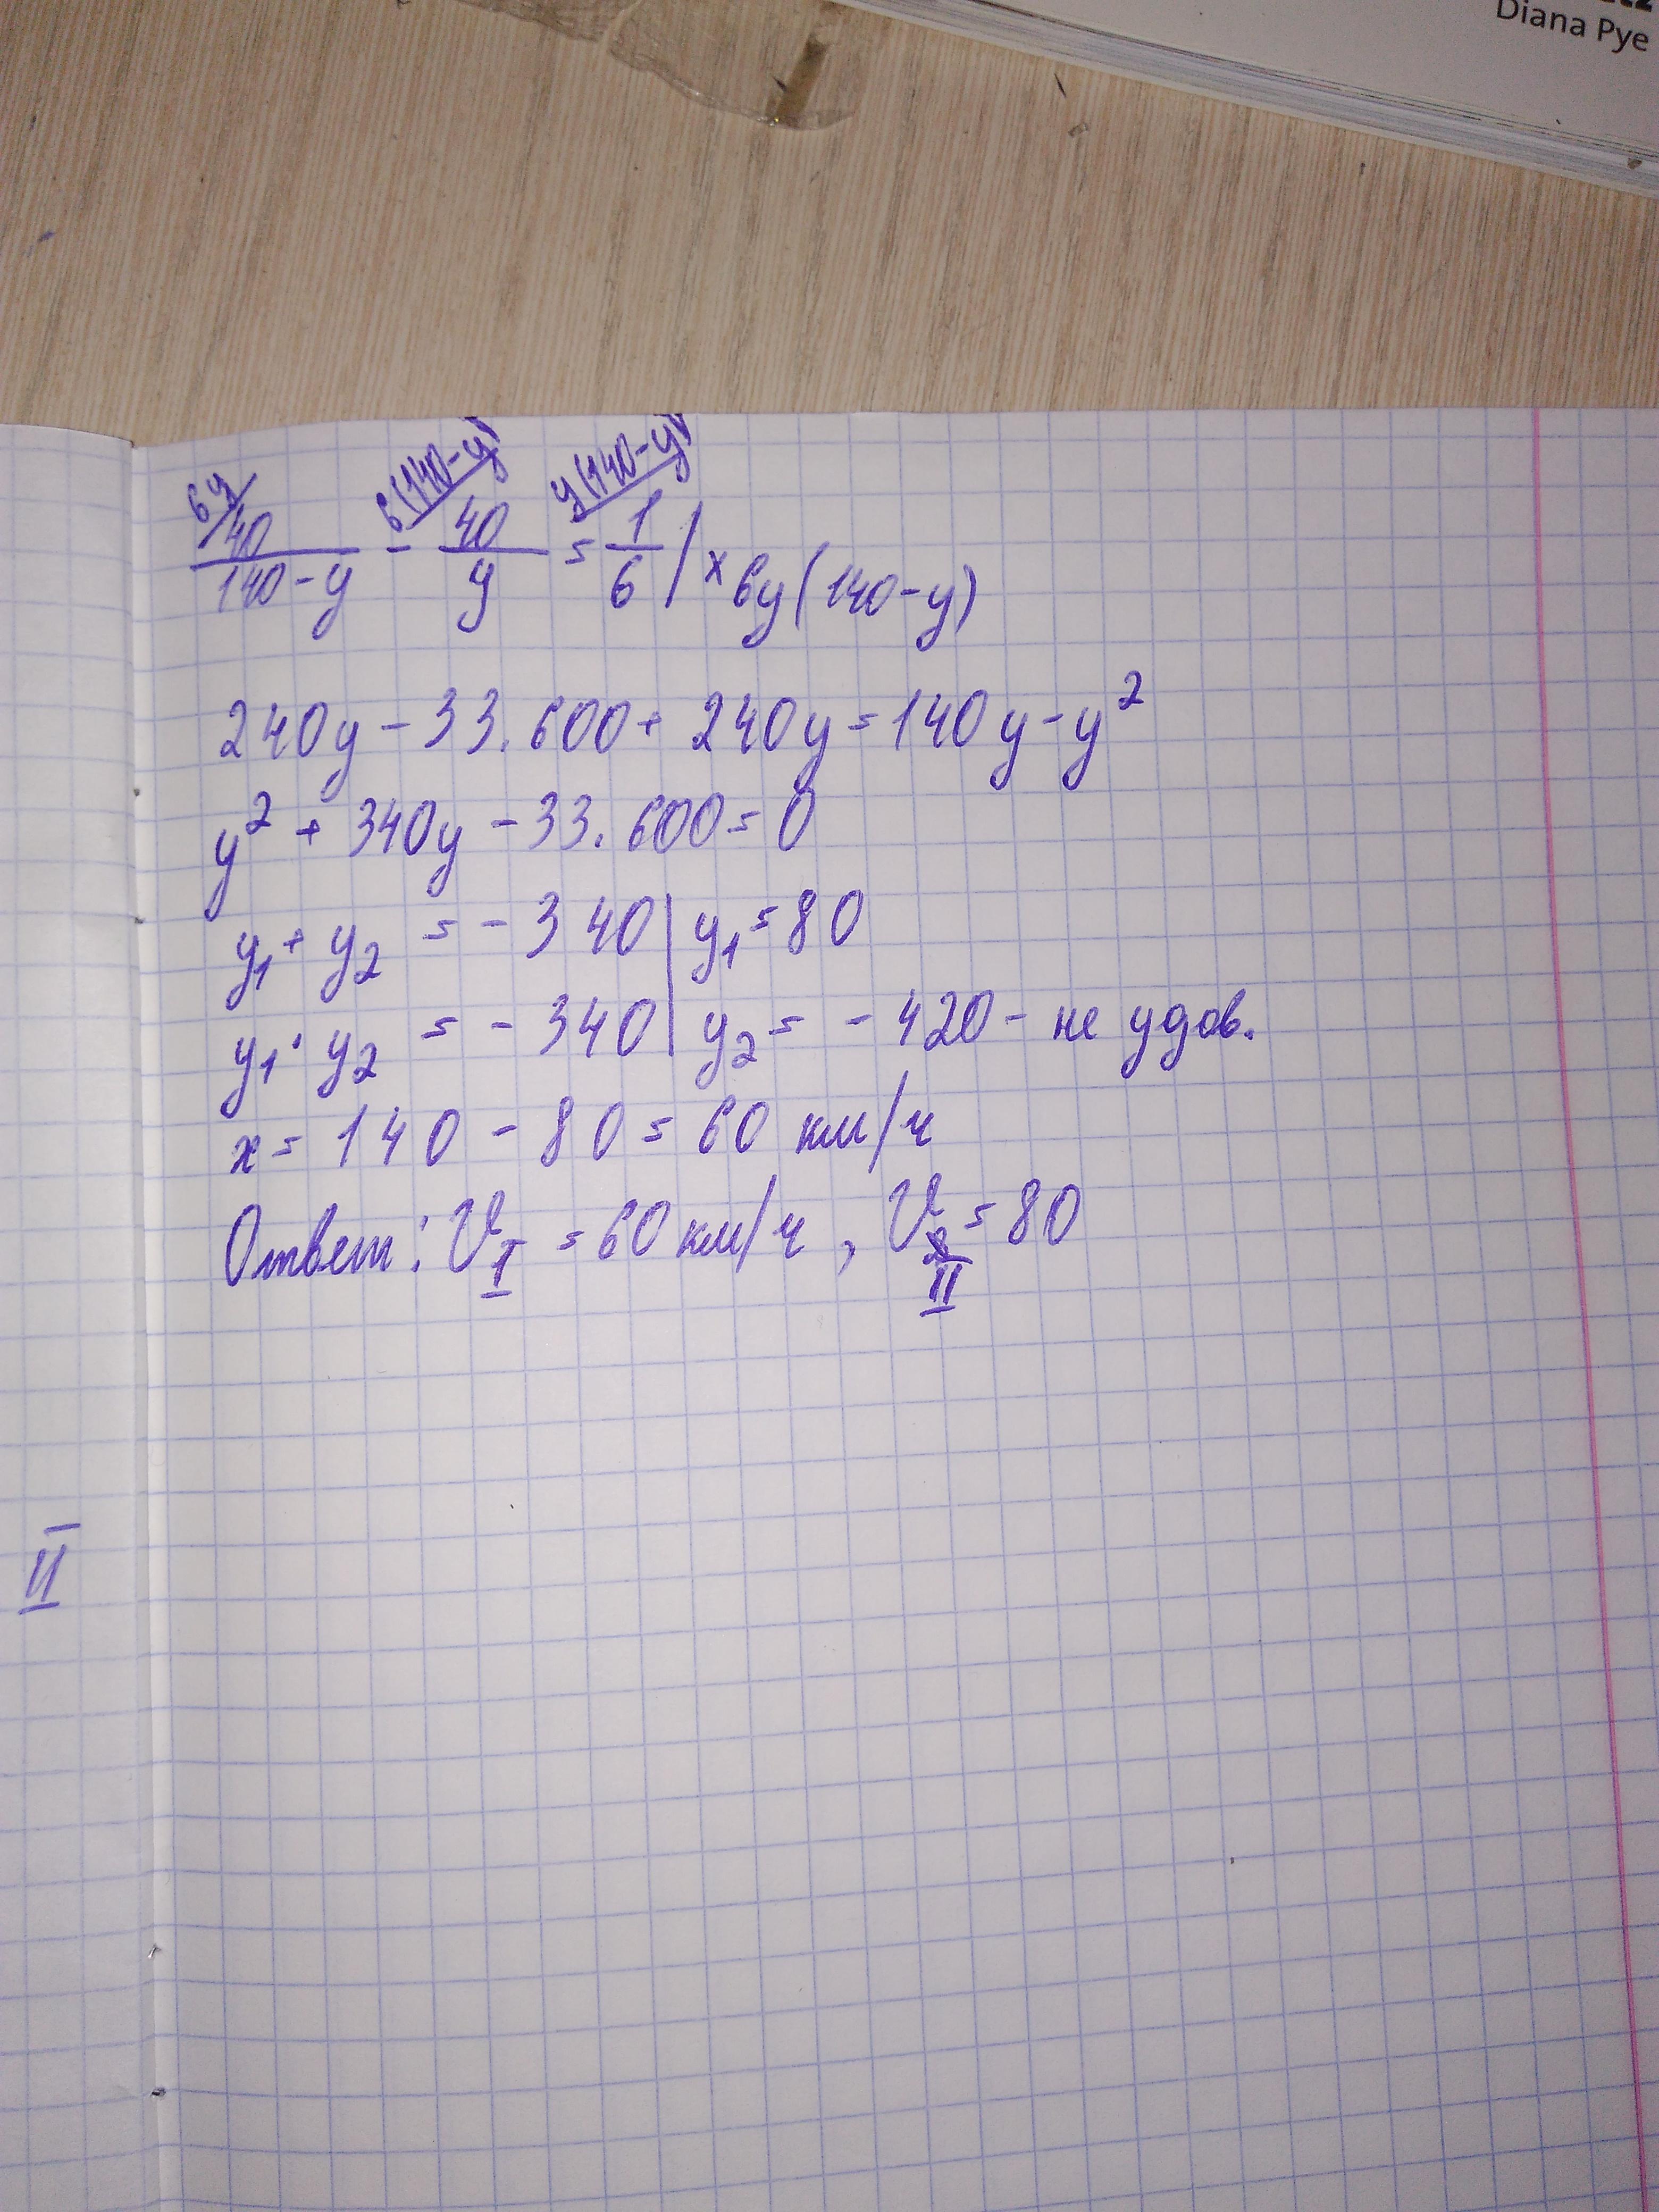 Diana Pye
6y/ 6(140-y)/ y(140-y)/
40/(140-y) - 40/y = 1/6 / × 6y(140-y)
240y - 33.600 + 240y = 140y - y²
y² + 340y - 33.600 = 0
y₁ + y₂ = - 340 | y₁ = 80
y₁ · y₂ = - 340 | y₂ = - 420 - не удов.
x = 140 - 80 = 60 км/ч
Ответ: V_I = 60 км/ч , V_II = 80
II